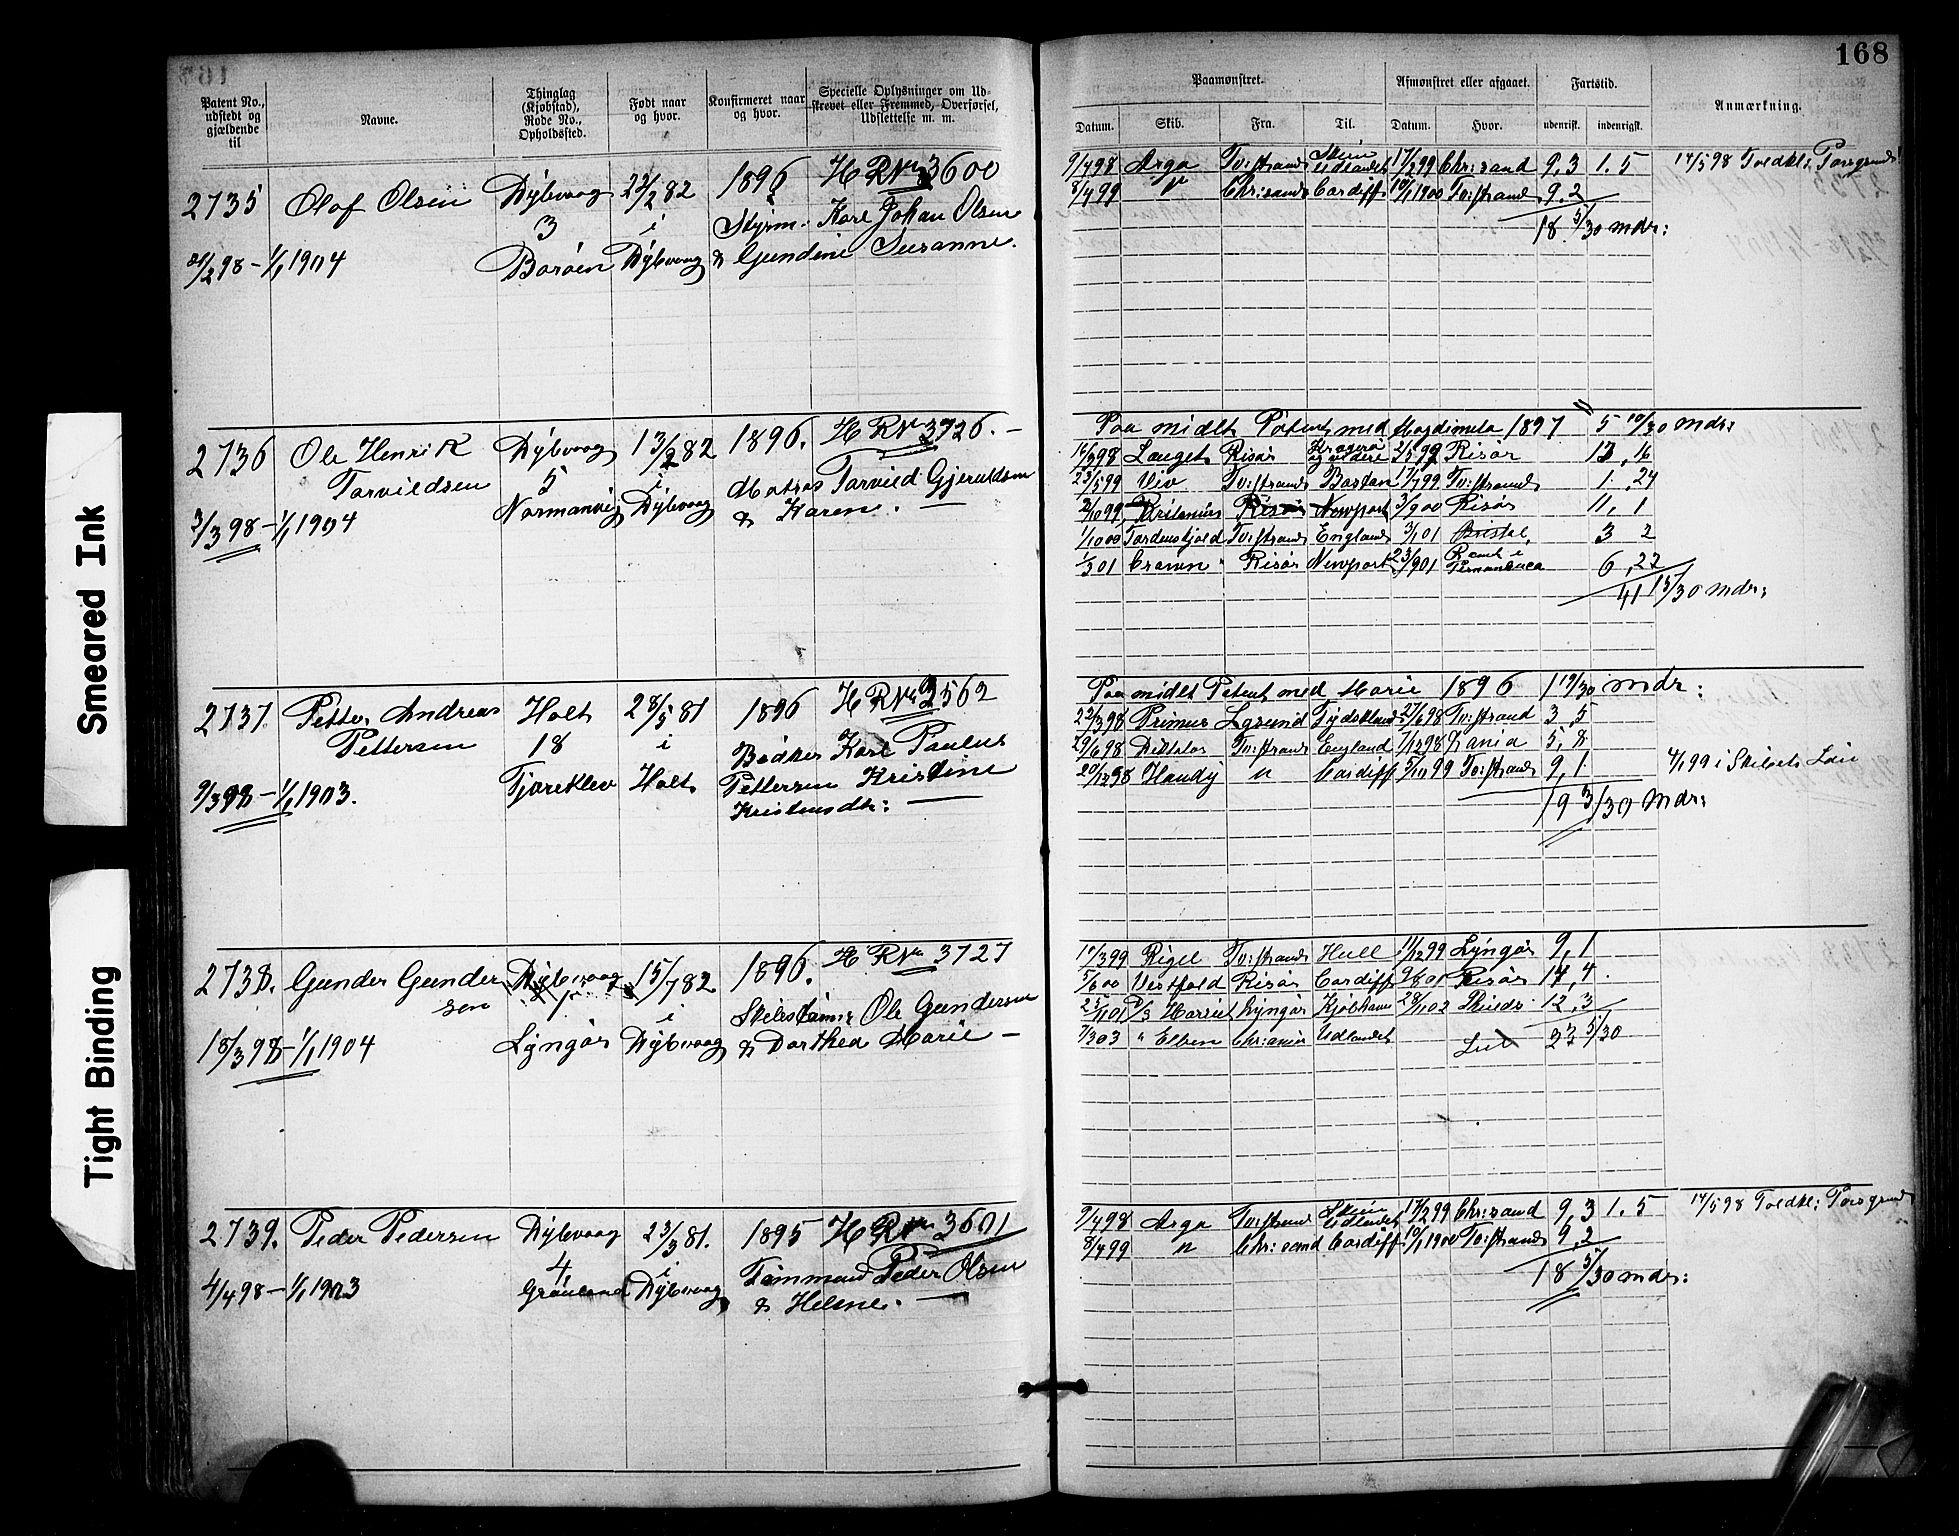 168
Smeared Ink
Tight Binding
Patent No., udstedt og gjældende til
Navne.
Thinglag (Kjøbstad), Rode No., Opholdssted.
Født naar og hvor.
Konfirmeret naar og hvor.
Specielle Oplysninger om Udskrevet eller Fremmed, Overførsel, Udslettelse m. m.
Paamønstret.
Afmønstret eller afgaaet.
Fartstid.
Anmærkning.
Datum. Skib. Fra. Til. Datum. Hvor. udenrigsk. indenrigsk.
2735 Olaf Olsen Dybvaag 23/2 82 1896 H R No 3600
3 i Styrm. Karl Johan Olsen
21/2 98 - 1/1 1904 Borøen Dybvaag & Gundine Susanne.
9/4 98 Arga Tv:strand Skien Udlandet 17/2 99 Chr:sand 9,3 1.5 14/5 98 Toldkl: Porsgrund
8/4 99 " Chr:sand Cardiff 10/1 1900 Tv:strand 9.2
18 5/30 mdr:
2736 Ole Henrik Dybvaag 13/2 82 1896. H R No 3726. -
Torvildsen 5 i Matros Torvild Gjeruldsen
3/3 98 - 1/1 1904 Normanvig Dybvaag & Karen. -
Paa midlt Patent med 1897 5 10/30 mdr:
Risør Kragerø 2/5 99 Risør 16
23/5 99 Tv:strand Boston 17/7 99 Tv:strand 1. 24
2/10 99 Risør Newport 3/9 00 Risør 11, 1
1/10 00 Tordenskjold Tv:strand England 3/1 01 Bristol, 3 2
1/3 01 Craven Risør Newport 23/9 01 Rømt i Pernambuco 6,22
41 15/30 mdr:
2737. Petter Andreas Holt 28/5 81 1896 H R No 3562
Pettersen 18 i Bødker Karl Paulus
9/3 98 - 1/1 1903. Tjoreklev Holt Pettersen Kristine
Kristensdtr: -
Paa midlt Patent med Marie 1896 1 19/30 mdr:
22/3 98 Primus Egsund Tydskland 27/6 98 Tv:strand 3,5
29/6 98 Tv:strand England 7/12 98 5,8
20/12 98 Handy " Cardiff 5/10 99 Tv:strand 9,1 4/1 99 i Skibets
19 3/30 mdr:
2738. Gunder Gundersen Dybvaag 15/7 82 1896. H R No 3727
i Skibstømr: Ole Gundersen
18/3 98 - 1/1 1904 Lyngør Dybvaag & Dorthea Marie -
10/3 99 Rigel Tv:strand Hull 11/12 99 Lyngør 9,1
5/6 00 Vestfold Risør Cardiff 9/8 01 Risør 14,4.
Lyngør Kjøbhavn 28/11 02 12,3
7/3 03 " Elben Chr:ania Udlandet 23 5/30
2739. Peder Pedersen Dybvaag 23/3 81. 1895 H R No 3601
4 i Tømmand Peder Olsen
4/4 98 - 1/1 1903 Grønland Dybvaag & Helene. -
9/4 98 Arga Tv:strand Skien Udlandet 17/2 99 Chr:sand 9,3 1.5 14/5 98 Toldkl: Porsgrund
8/4 99 " Chr:sand Cardiff 10/1 1900 Tv:strand 9,2
18 5/30 mdr: